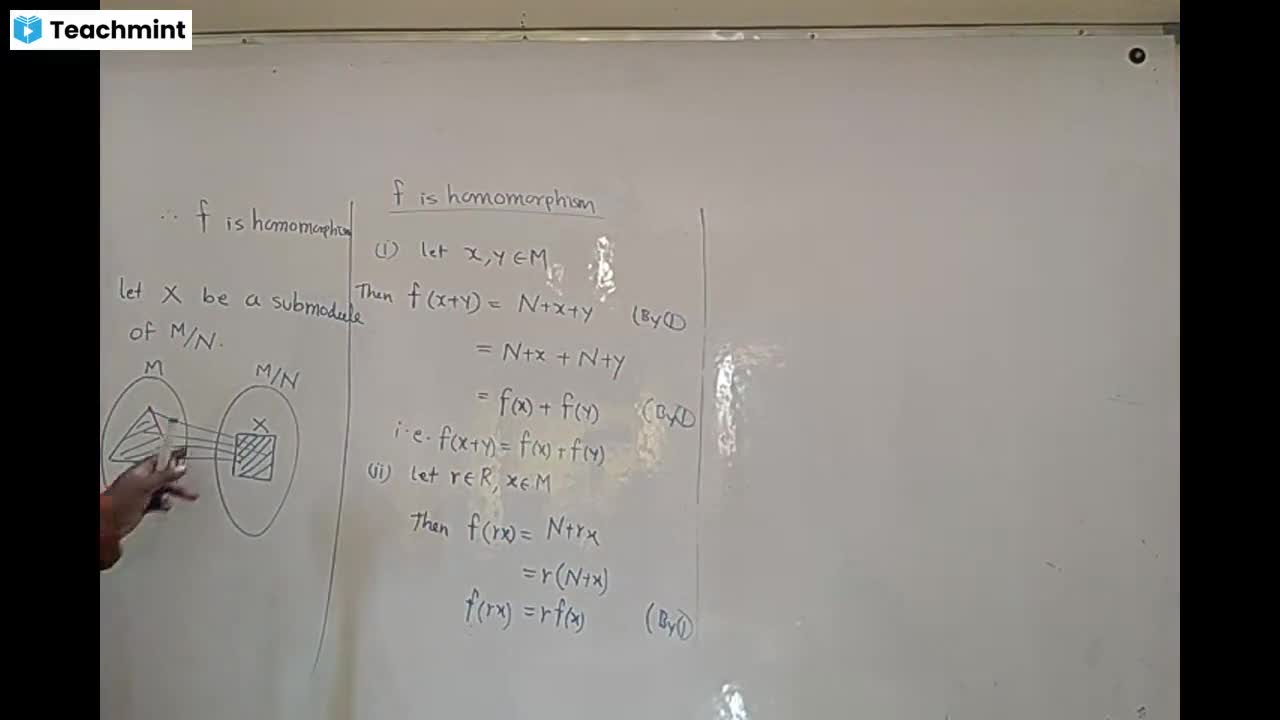 Teachmint
∴ f is homomorphism
let X be a submodule
of M/N.
M
M/N
X
f is homomorphism
(i) let x, y ∈ M
Then f(x+y) = N+x+y (By ①
= N+x + N+y
= f(x) + f(y) (By ①
i.e. f(x+y) = f(x) + f(y)
(ii) let r ∈ R, x ∈ M
Then f(rx) = N+rx
= r(N+x)
f(rx) = r f(x) (By ①